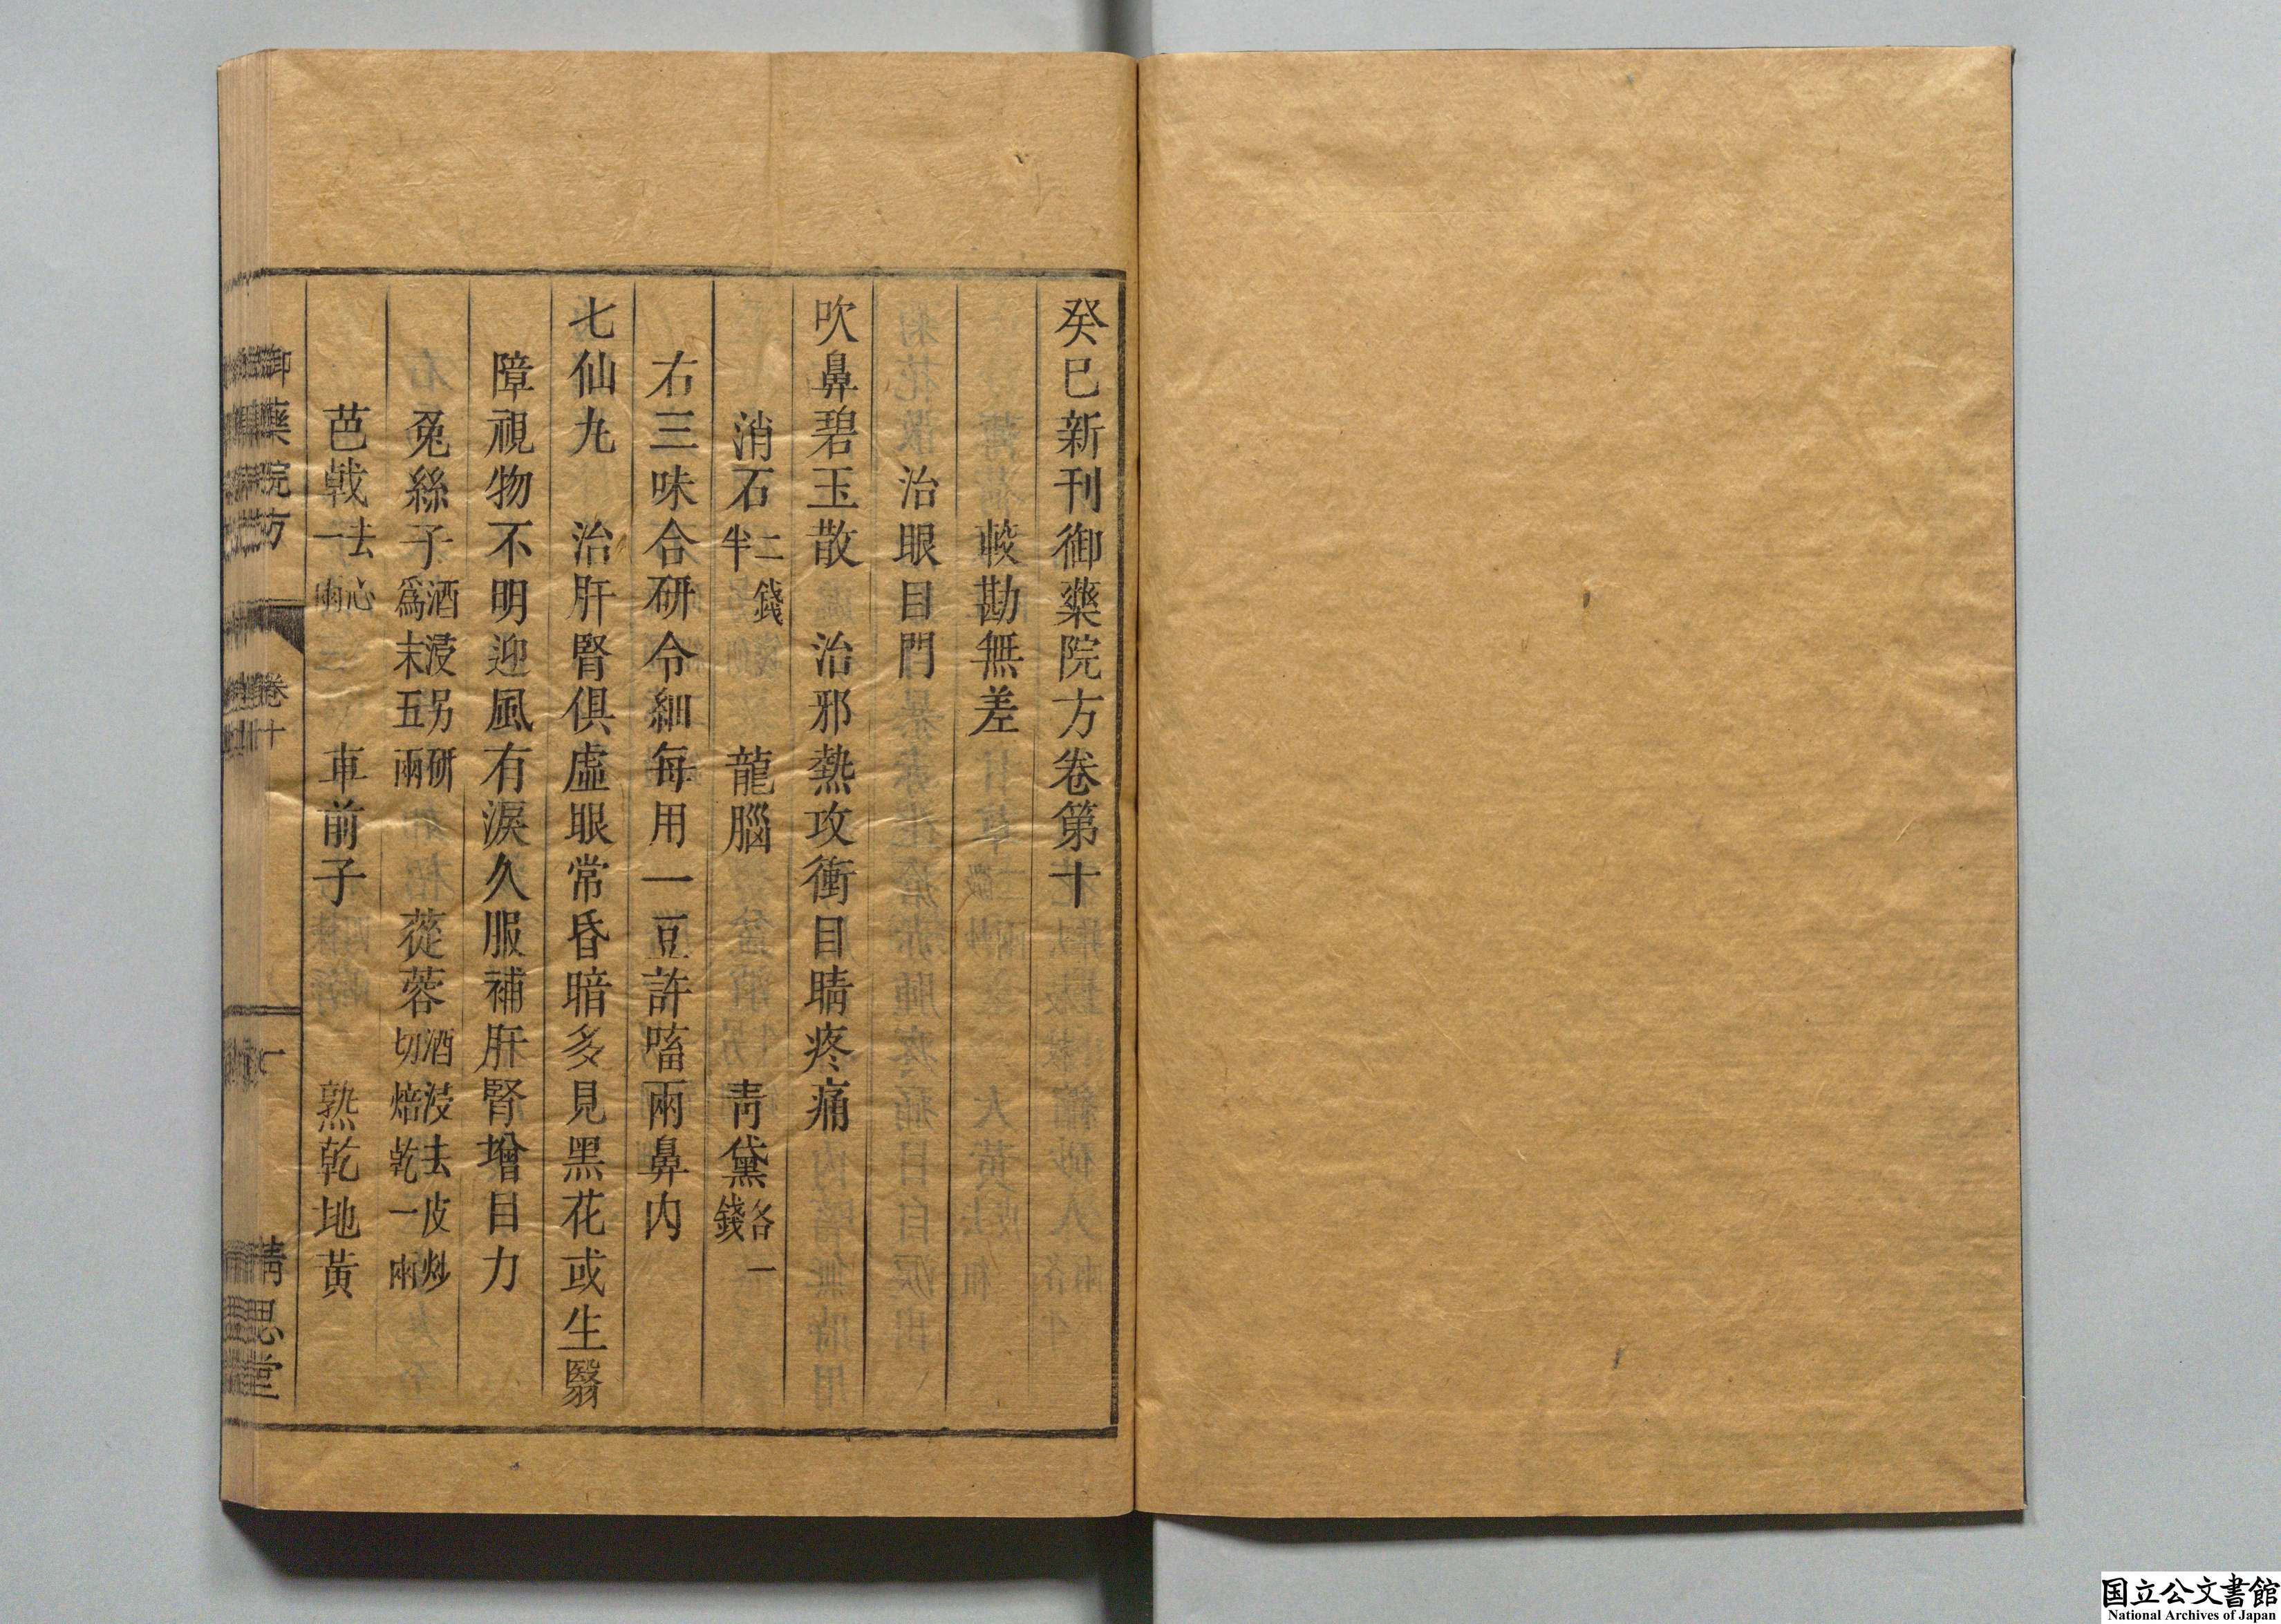 癸巳新刊御藥院方卷第十
較勘無差
治眼目門
吹鼻碧玉散　治邪熱攻衝目睛疼痛
消石二錢半　龍腦　青黛各一錢
右三味合研令細每用一豆許㗜兩鼻內
七仙丸　治肝腎俱虛眼常昏暗多見黑花或生翳
障視物不明迎風有淚久服補肝腎增目力
兔絲子酒浸另研爲末五兩　蓯蓉酒浸去皮炒切焙乾一兩
芭戟去心一兩　車前子　熟乾地黃
御藥院方　卷十　一　精思堂
国立公文書館
National Archives of Japan